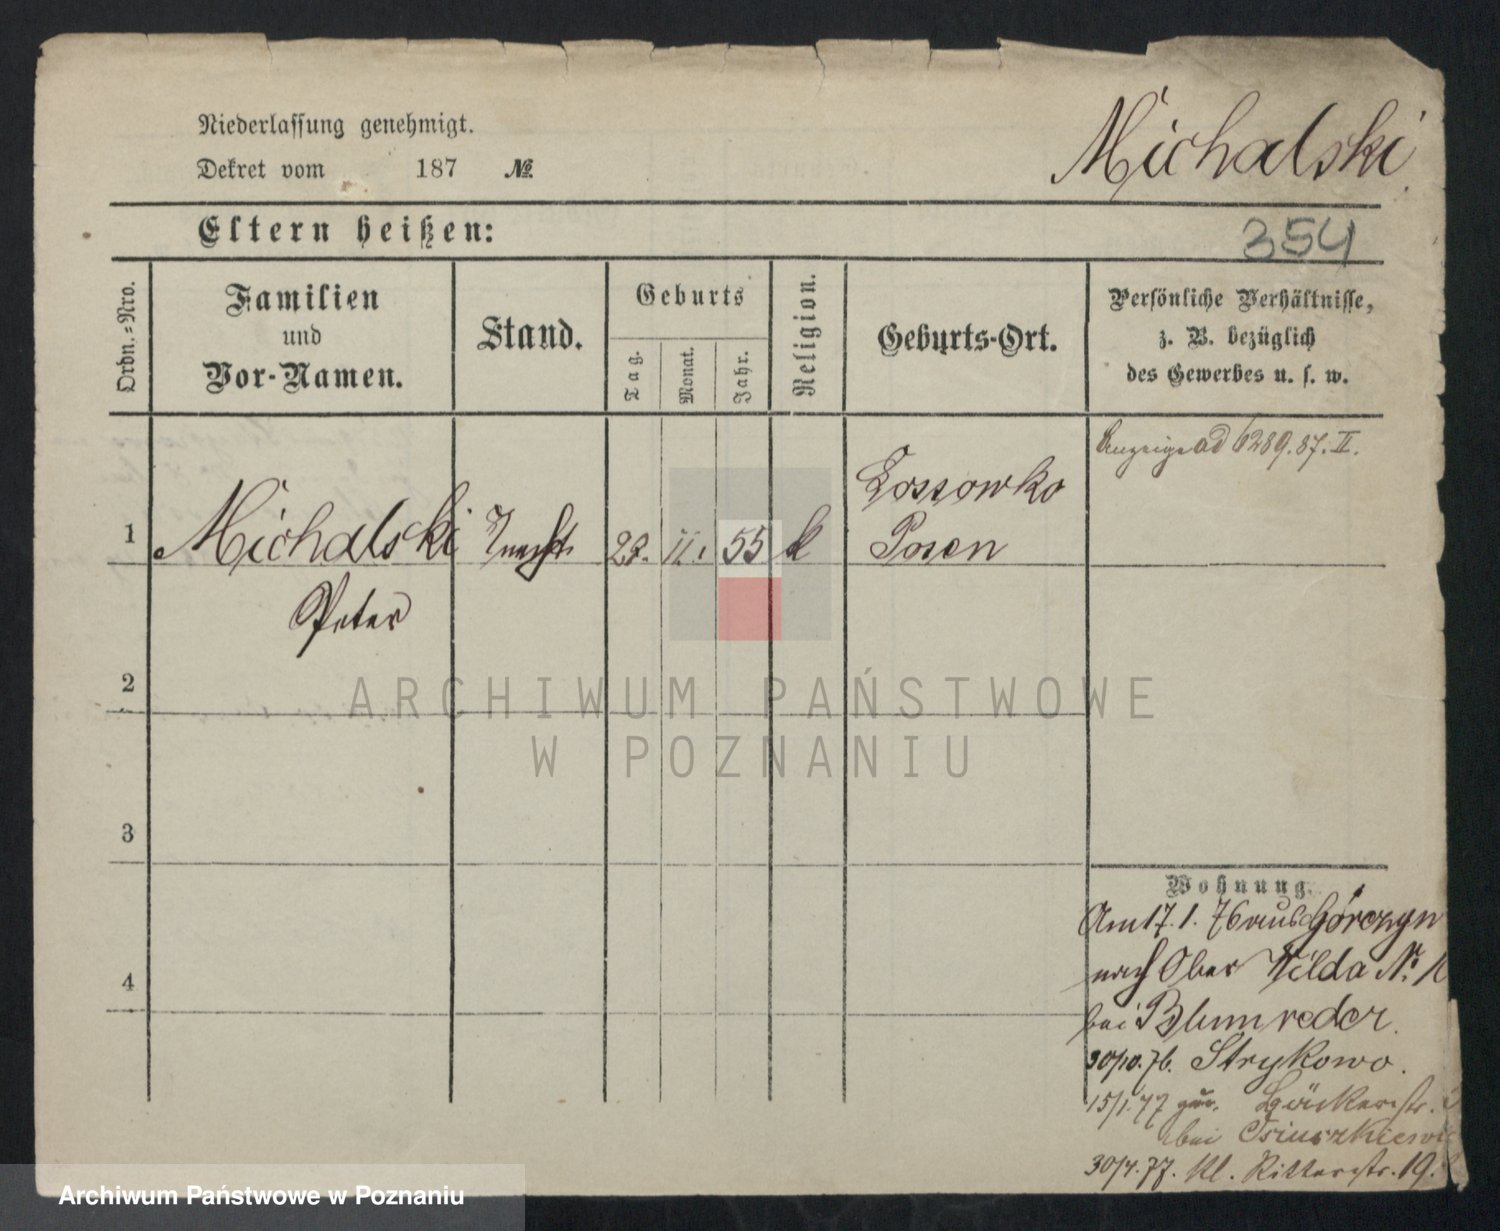 Niederlassung genehmigt.
Dekret vom 187 №
Michalski
Eltern heißen:
354
Ordn.=Nro.
Familien
und
Vor-Namen.
Stand.
Geburts
Tag.
Monat.
Jahr.
Religion.
Geburts-Ort.
Persönliche Verhältnisse,
z. B. bezüglich
des Gewerbes u. s. w.
Anzeige ad 6289.87.II.
1 Michalski Knecht 22. II. 55 k Lossowko
Posen
Peter
2
3
4
Wohnung.
Am 17.1.76 aus Górczyn
nach Ober Wilda Nr.
bei Blumreder.
30/10.76. Strykowo.
15/1.77 zur. Bäckerstr.
bei
30/4.77. Kl. Ritterstr. 19.
ARCHIWUM PAŃSTWOWE
W POZNANIU
Archiwum Państwowe w Poznaniu